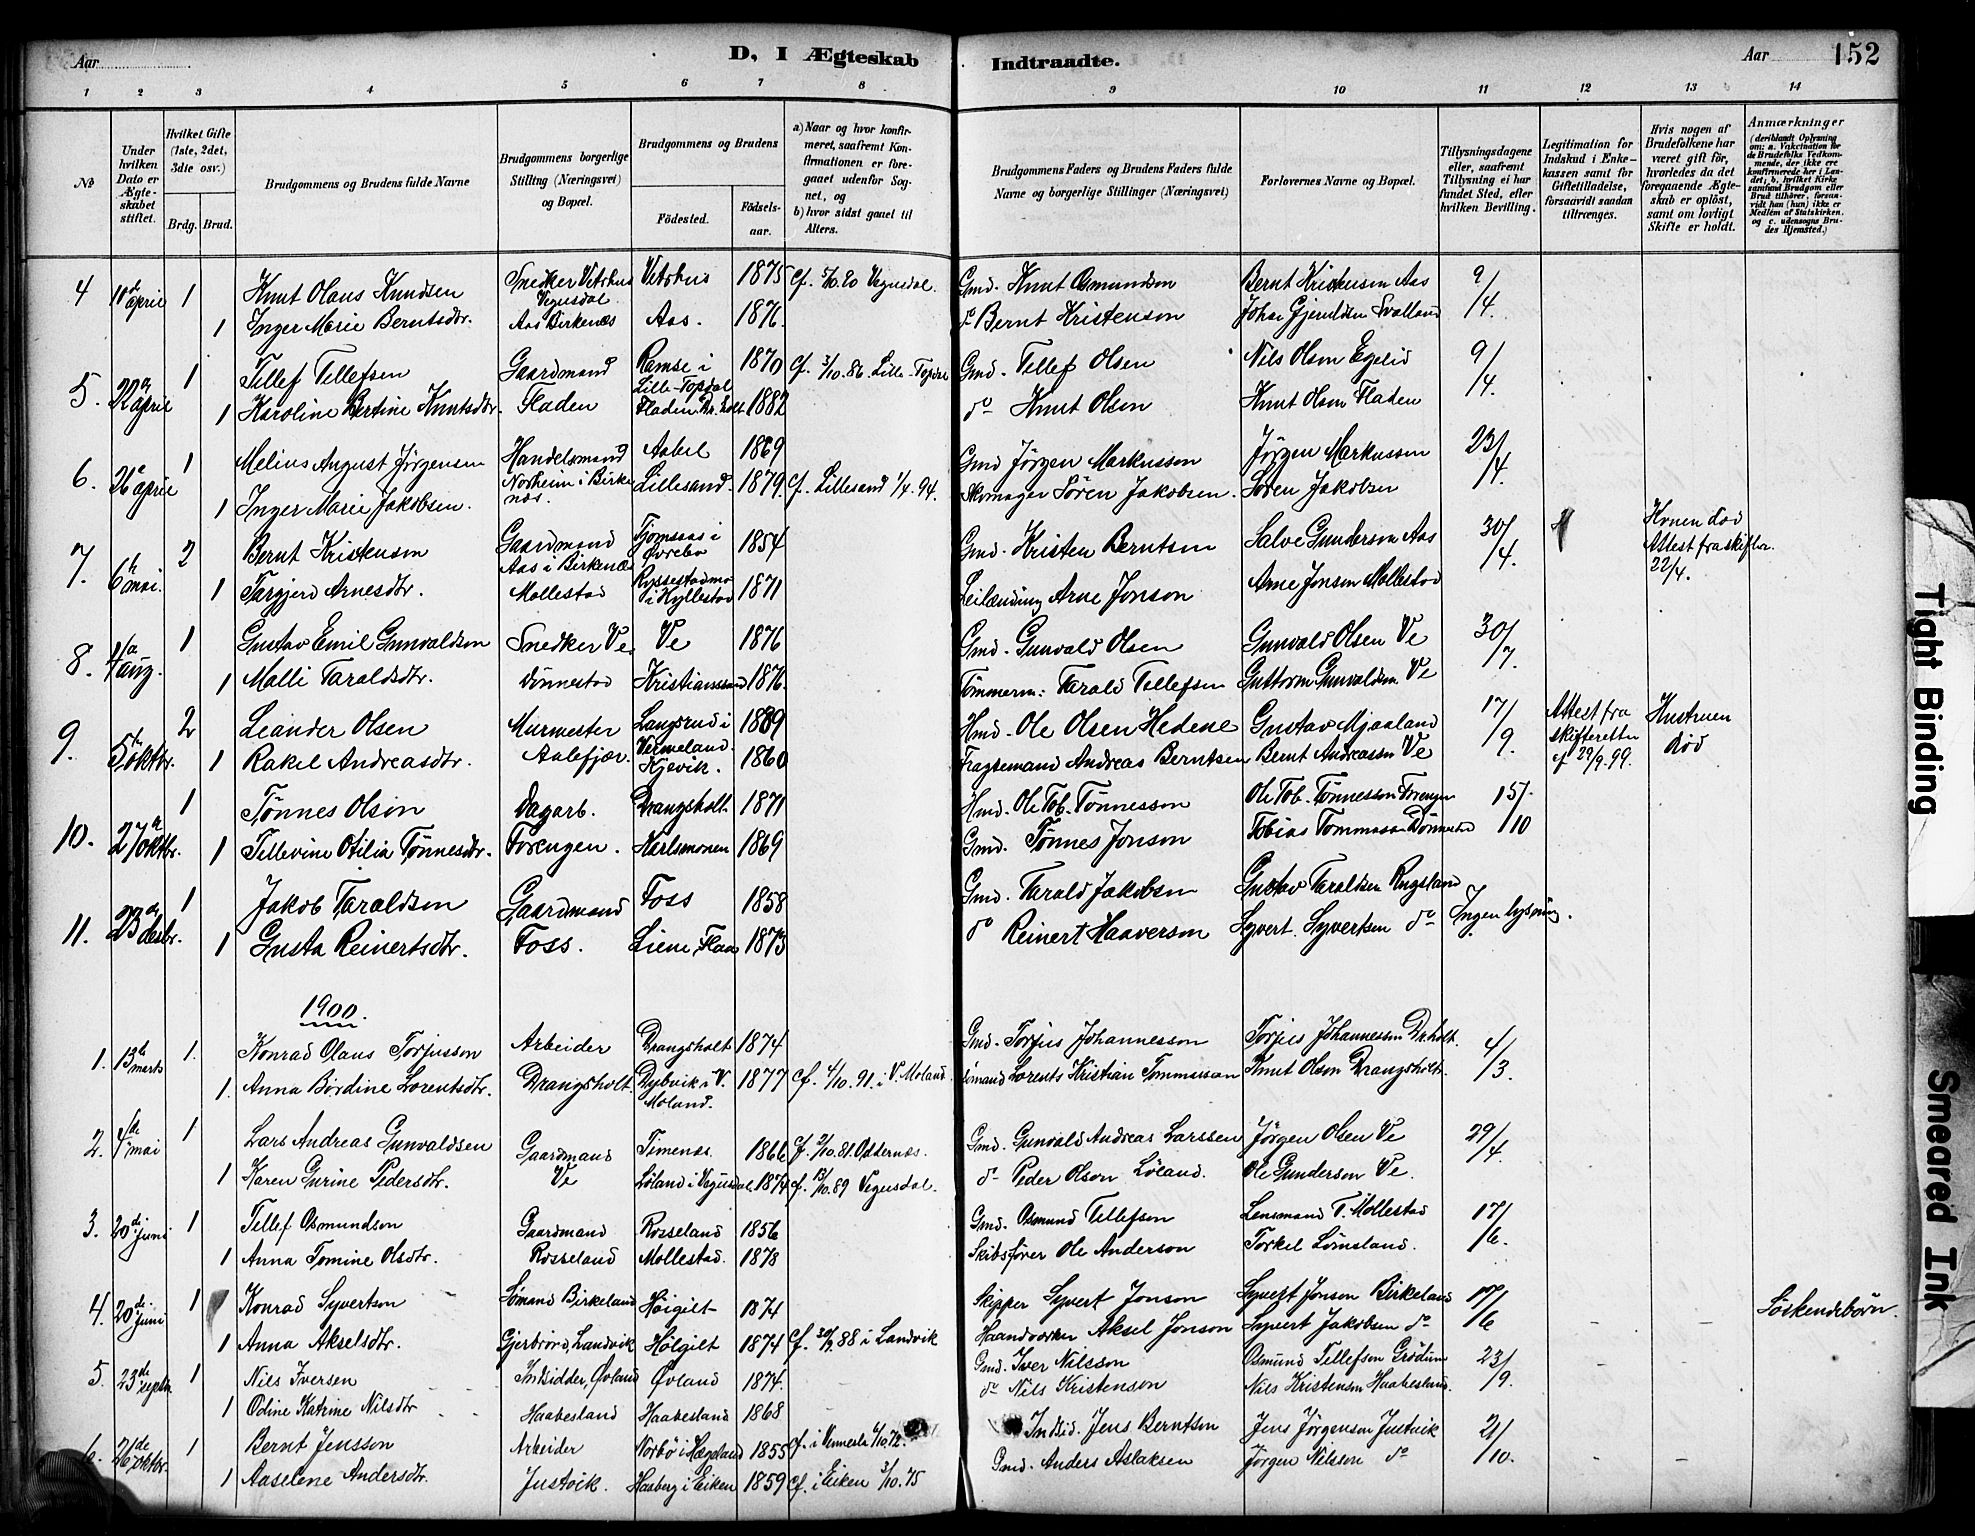 Aar
D, I Ægteskab
Indtraadte.
Aar 152
1 2 3 4 5 6 7 8 9 10 11 12 13 14
№
Under hvilken Dato er Ægteskabet stiftet.
Hvilket Gifte (1ste, 2det, 3die osv.)
Brdg. Brud.
Brudgommens og Brudens fulde Navne
Brudgommens borgerlige Stilling (Næringsvei) og Bopæl.
Brudgommens og Brudens
Födested. Födselsaar.
a) Naar og hvor konfirmeret, saafremt Konfirmationen er foregaaet udenfor Sognet, og
b) hvor sidst gaaet til Alters.
Brudgommens Faders og Brudens Faders fulde Navne og borgerlige Stillinger (Næringsvei)
Forlovernes Navne og Bopæl.
Tillysningsdagene eller, saafremt Tillysning ei har fundet Sted, efter hvilken Bevilling.
Legitimation for Indskud i Enkekassen samt for Giftetilladelse, forsaavidt saadan tiltrænges.
Hvis nogen af Brudefolkene har været gift för, hvorledes da det foregaaende Ægteskab er oplöst, samt om lovligt Skifte er holdt.
Anmærkninger (deriblandt Oplysning om: a. Vaccination for de Brudefolks Vedkommende, der ikke ere konfirmerede her i Landet; b. hvilket Kirkesamfund Brudgom eller Brud tilhörer, forsaavidt han (hun) ikke er Medlem af Statskirken. og c. udensogns Brudes Hjemsted.)
4 10de april 1 Knut Olaus Knudsen Snedker Vetrhus Vegusdal Vetrhus 1875 Cf. 5/10.90 Vegusdal. Gmd. Knut Osmundson Bernt Kristenson Aas 9/4.
1 Inger Marie Berntsdtr. Aas Birkenæs Aas. 1876. do Bernt Kristenson Johan Gjeruldsen Svalland
5. 22de april 1 Tellef Tellefsen Gaardmand Ramse i Lille-Topdal 1870 Cf. 3/10.86. Lille-Topdal Gmd. Tellef Olsen Nils Olsen Egelid 9/4.
1 Karoline Bertine Knutsdtr. Fladen Fladen Dr.holt 1882 do Knut Olsen Knut Olsen Fladen
6. 26e april 1 Melius August Jörgensen Handelsmand Aabel 1869 Gmd Jörgen Markusson Jörgen Markusson 23/4.
1 Inger Marie Jakobsen. Norheim i Birkenæs. Lillesand. 1879. Cf. Lillesand 1/4.94. Skomager Sören Jakobsen. Sören Jakobsen
7. 6te mai. 2 Bernt Kristenson Gaardmand Aas i Birkenæs Tjomsaas i Øvrebo 1854 Gmd. Kristen Berntsen Salve Gunderson Aas 30/4. Konen död Attest fra skiftr. 22/4.
1 Targjerd Arnesdtr. Mollestad Ryssestadmo i Hyllestad 1871 Leilænding Arne Jonson Arne Jonson Mollestad
8. 4de aug. 1 Gustav Emil Gunvaldson Snedker Ve Ve 1876 Gmd. Gunvald Olsen Gunvald Olsen Ve 30/7.
1 Malli Taraldsdtr. Dönnestad Kristianssand 1876. Tömmerm: Tarald Tellefsen Guttorm Gunvaldsen Ve
9. 5te oktbr. 2 Leander Olsen Murmester Langsrud i Vermeland. 1839 Hmd. Ole Olsen Hedene Gustav Mjaaland 17/9. Attest fra skifteretten af 29/9.99. Hustruen död
1 Rakel Andreasdtr. Aalefjær. Kjevik. 1860 Fragtemand Andreas Berntsen Bernt Andreassen Ve
10. 27de oktbr. 1 Tønnes Olson Dagarb. Drangsholt. 1871 Hmd. Ole Tob. Tönnesson Ole Tob. Tönnesson Torengen 15/10
1 Tellevine Otilia Tønnesdtr. Torengen. Karlsmonen 1869 Gmd. Tönnes Jonson Tobias Tommassen Dönnestad
11. 23de desbr. 1 Jakob Taraldsen Gaardmand Foss 1858 Gmd. Tarald Jakobsen Gustav Taraldsen Rugsland Ingen lysning.
1 Gusta Reinertsdtr. Foss. Liene, Flaa 1873 do Reinert Haaverson Syvert Syvertsen do
1900.
1. 13de marts 1. Konrad Olaus Torjusson Arbeider Drangsholt 1874 Gmd. Torjus Johannesson Torjus Johannessen Dr.holt. 4/3.
1. Anna Bördine Lorentsdtr. Drangsholt Dybvik i V. Moland. 1877 Cf. 4/10.91. i V. Moland. Sömand Lorents Kristian Tommassen Knut Olsen Drangsholt.
2. 4de mai 1 Lars Andreas Gunvaldsen Gaardmand Timenæs. 1866 Cf. 2/10.81. Oddernæs. Gmd. Gunvald Andreas Larssen Jörgen Olsen Ve 29/4.
1 Karen Gurine Pedersdtr. Ve Löland i Vegusdal. 1874 cf. 13/10.89 Vegusdal. do Peder Olson Löland. Ole Gunderson Ve.
3. 20de juni 1 Tellef Osmundson Gaardmand Rosseland 1856 Gmd. Osmund Tellefson Lensmand T. Mollestad 17/6.
1 Anna Tomine Olsdtr. Rosseland Mollestad. 1878 Skibsfører Ole Anderson Torkel Lömsland.
4. 20de juni 1 Konrad Syvertson Sømand Birkeland Höigilt 1874 Skipper Syvert Jonson Syvert Jonson Birkeland 17/6 Söskendebörn.
1 Anna Akselsdtr. Gjerbrönd, Landvik Hölgilt 1874 Cf. 30/9.88 i Landvik Haandværker Aksel Jonson Syvert Jakobsen do
5. 23de septbr. 1 Nils Iversen Indsidder, Øvland Øvland 1874. Gmd. Iver Nilsson Osmund Tellefson Grödum 23/9.
1 Odine Katrine Nilsdtr Haabesland Haabesland 1868 do Nils Kristenson Nils Kristenson Haabesland.
6. 26de oktbr. 1 Bernt Jensson Arbeider Norbö i Hægeland 1855 Cf. i Vennesla 6/10.72. Indsid. Jens Berntson Jens Jørgenson Justvik 21/10.
1 Aaselene Andersdtr. Justvik. Haaberg i Eiken 1859 Cf. i Eiken 3/10.75 Gmd. Anders Aslaksen Jörgen Nilsson do
Tight Binding
Smeared Ink